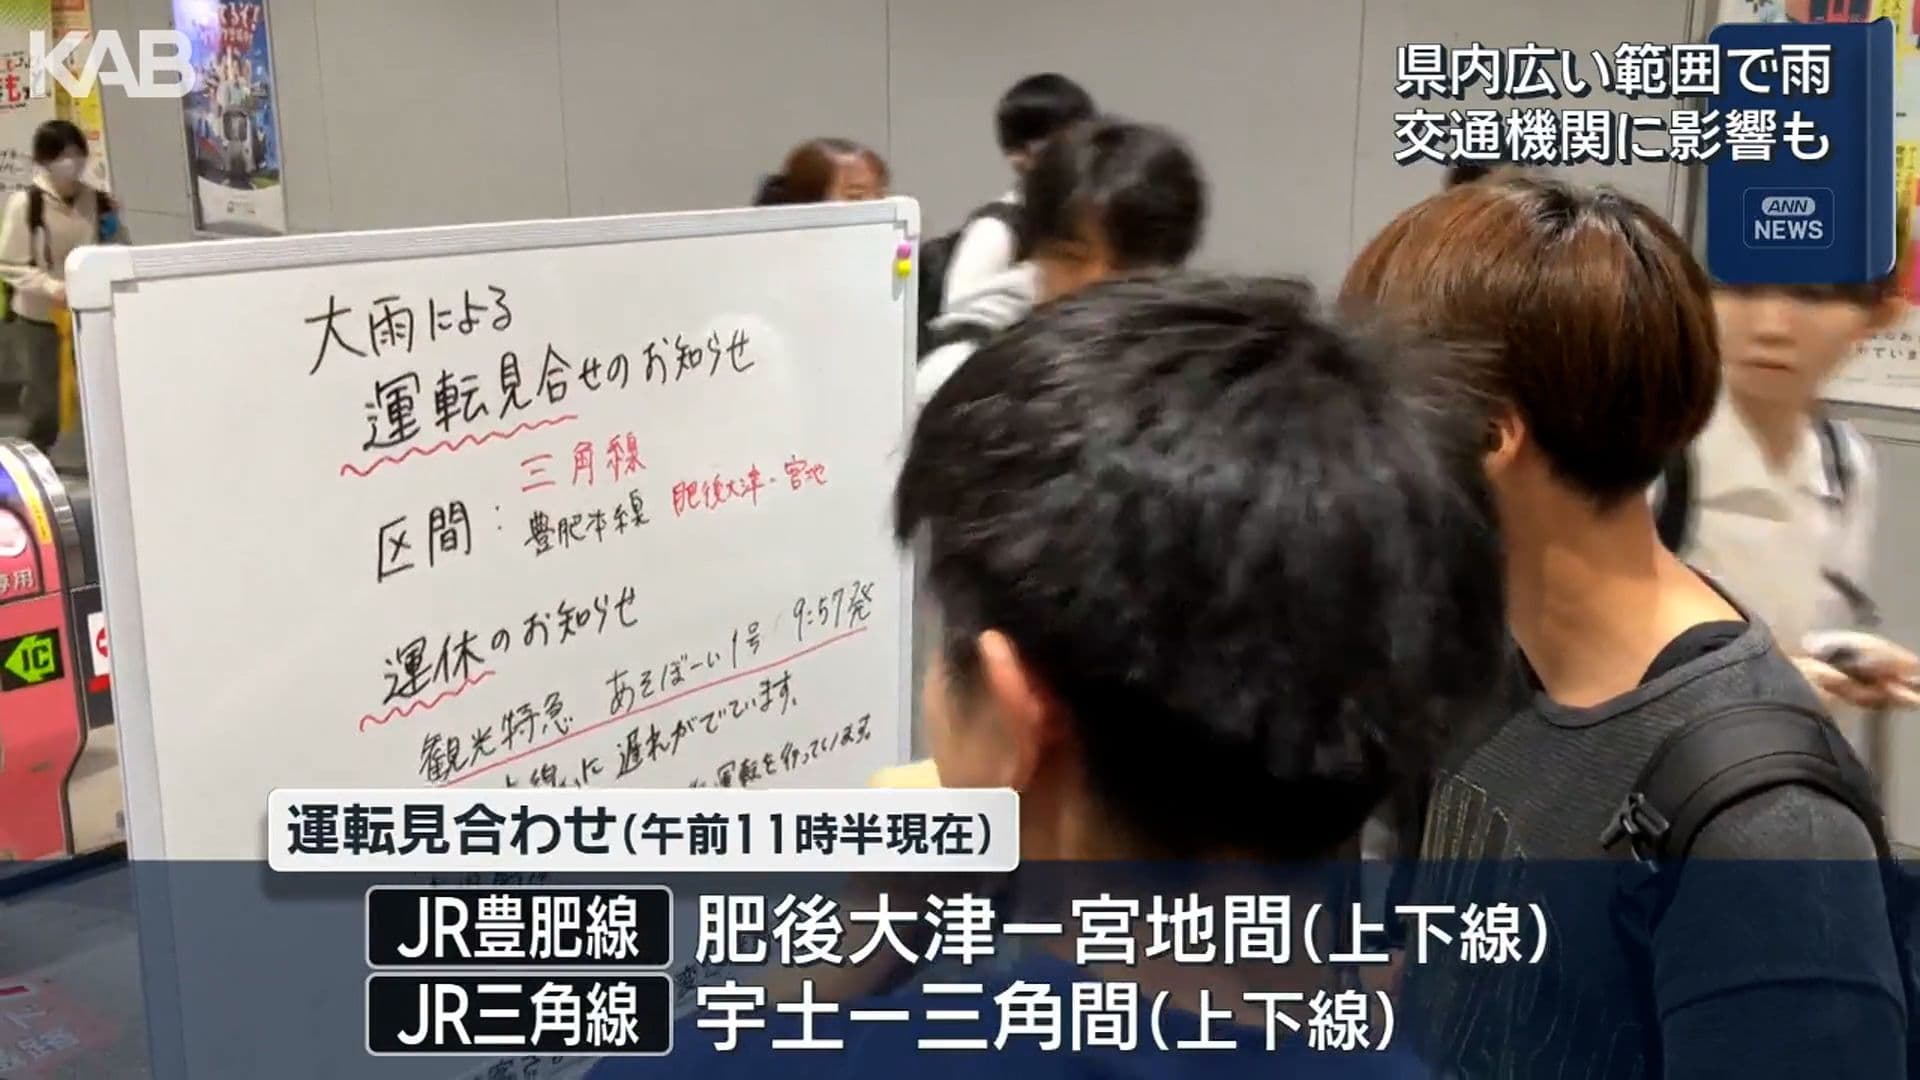 KAB
県内広い範囲で雨
交通機関に影響も
ANN
NEWS
大雨による
運転見合せのお知らせ
三角線
区間：豊肥本線 肥後大津・宮地
運休のお知らせ
観光特急 あそぼーい1号 9:57発
遅れがでています。
運転を行っています。
専用
IC
運転見合わせ(午前11時半現在)
JR豊肥線 肥後大津ー宮地間(上下線)
JR三角線 宇土ー三角間(上下線)